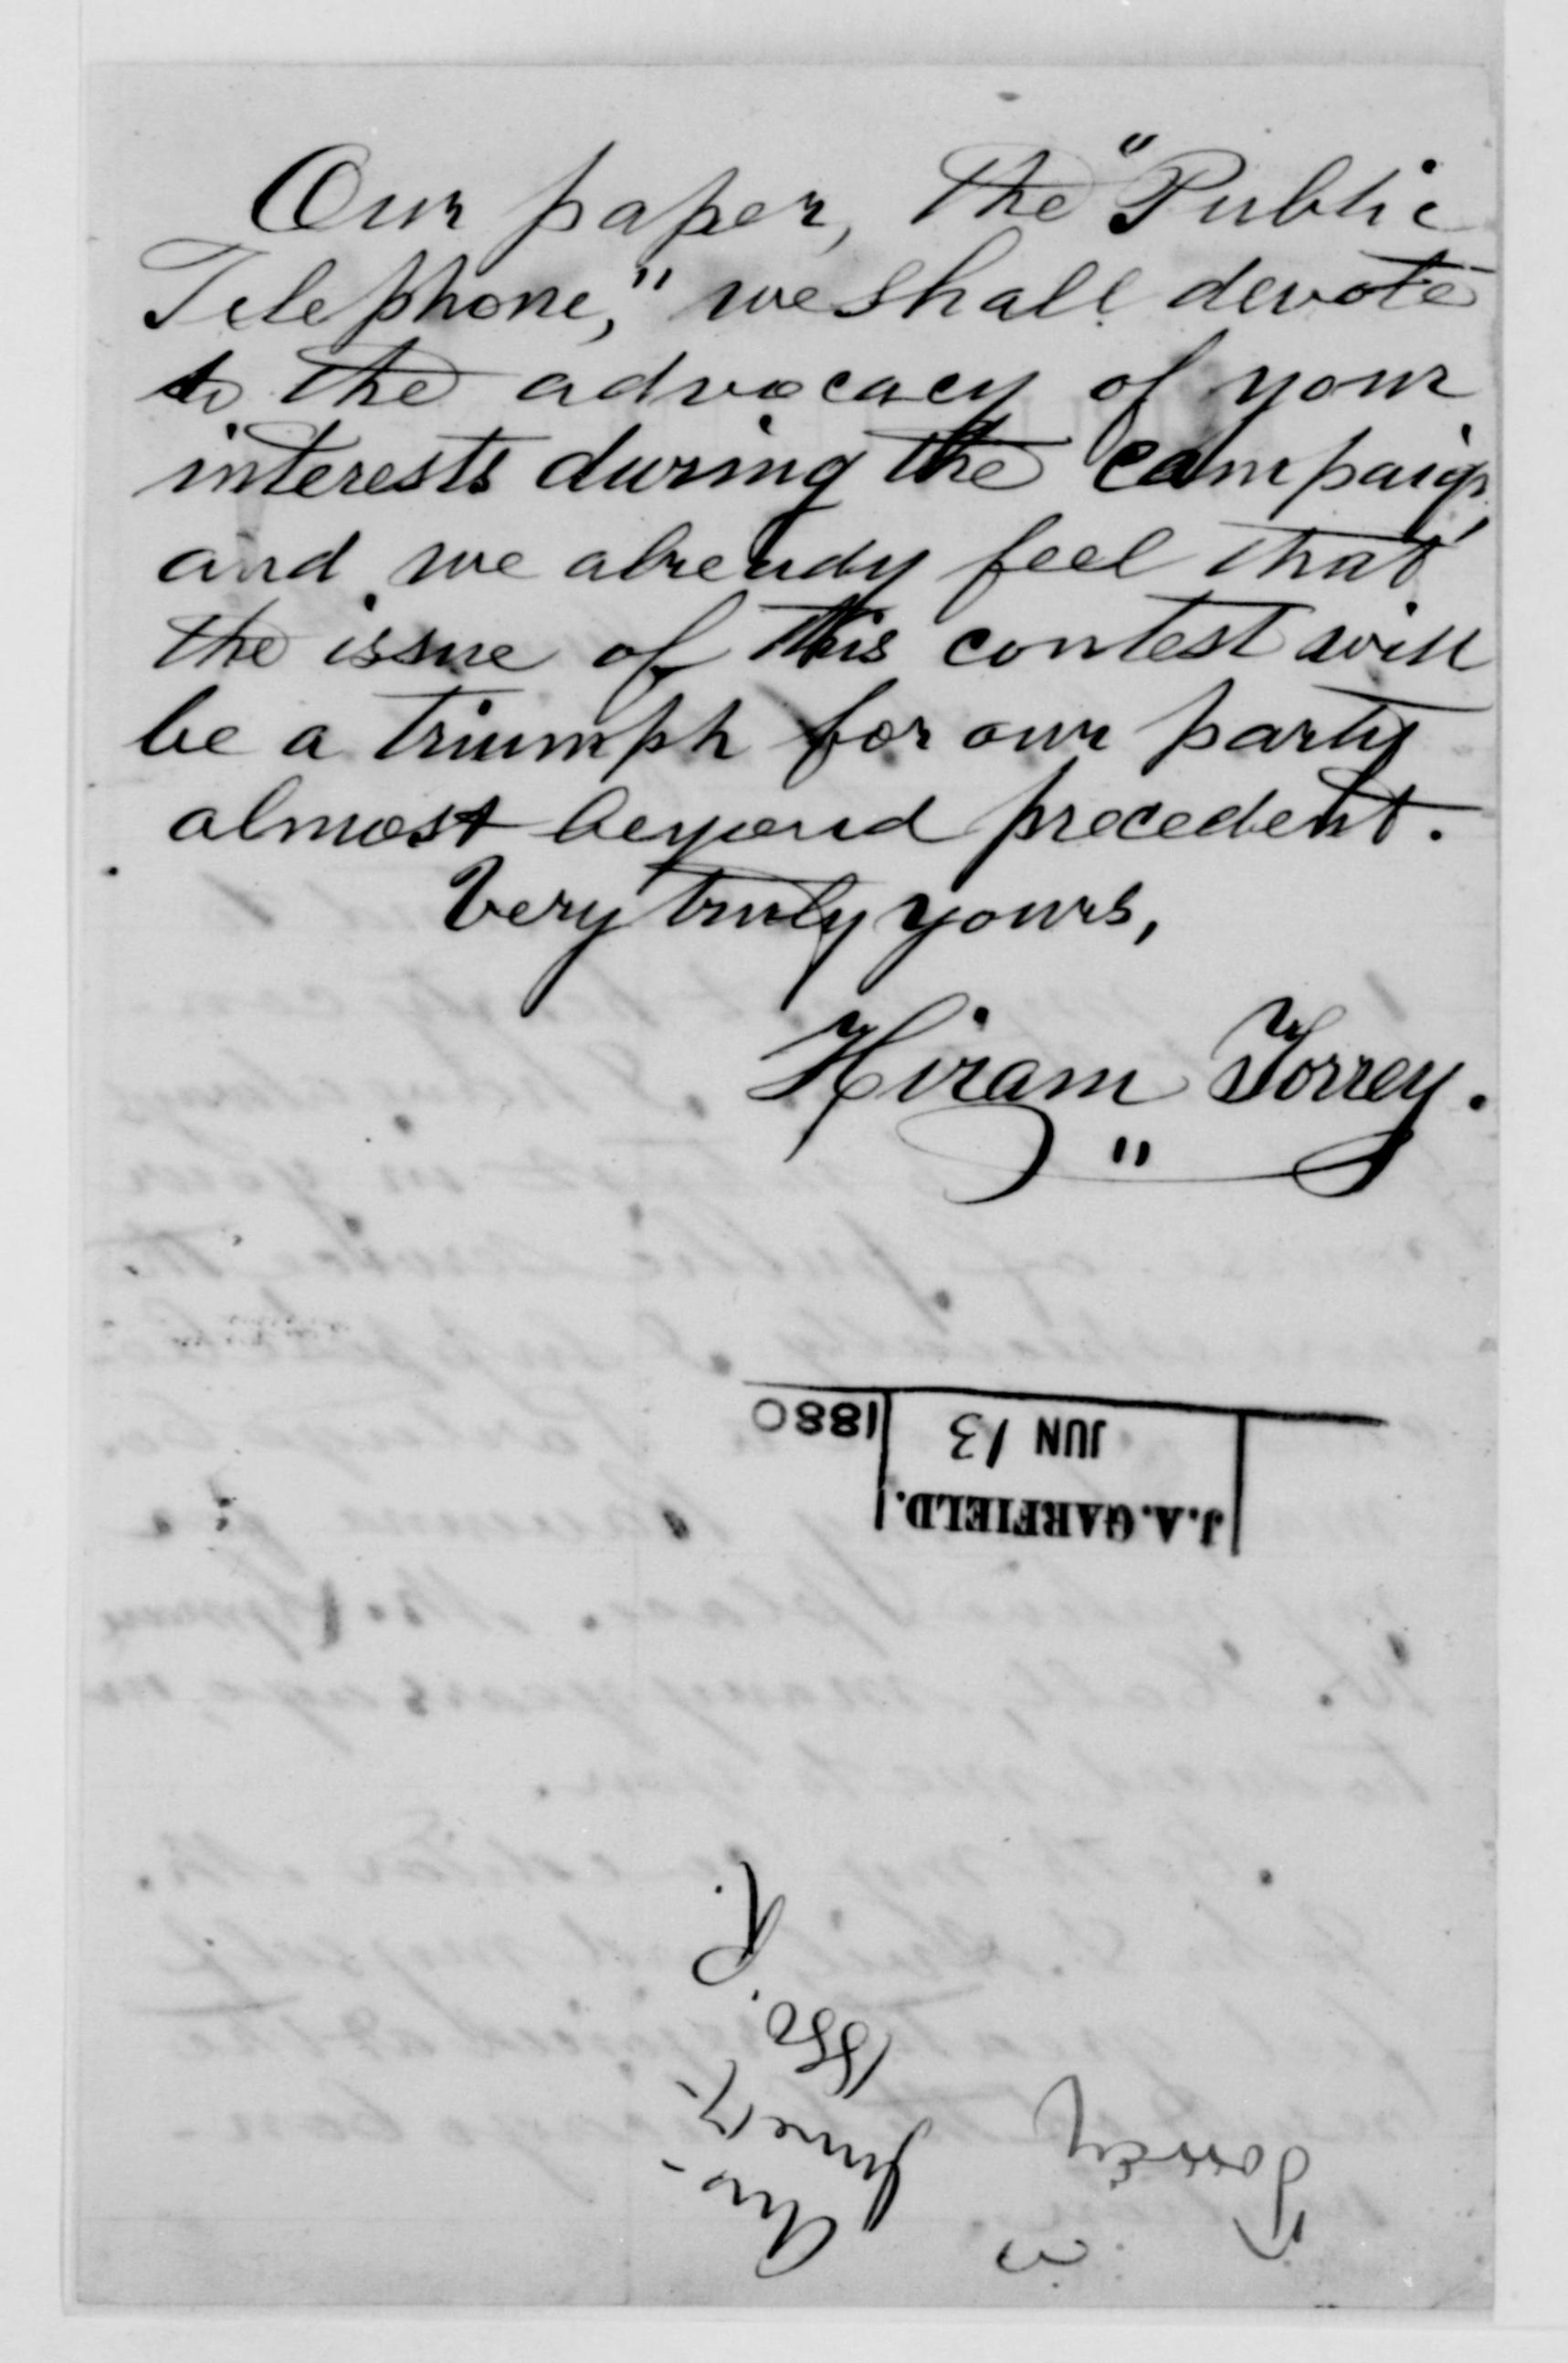 Our paper, the "Public
Telephone," we shall devote
to the advocacy of your
interests during the campaign
and we already feel that
the issue of this contest will
be a triumph for our party
almost beyond precedent.
Very truly yours,
Hiram Torrey.
J.A. GARFIELD.
JUN 13 1880
Torrey
Ans-
June 17-
1880.